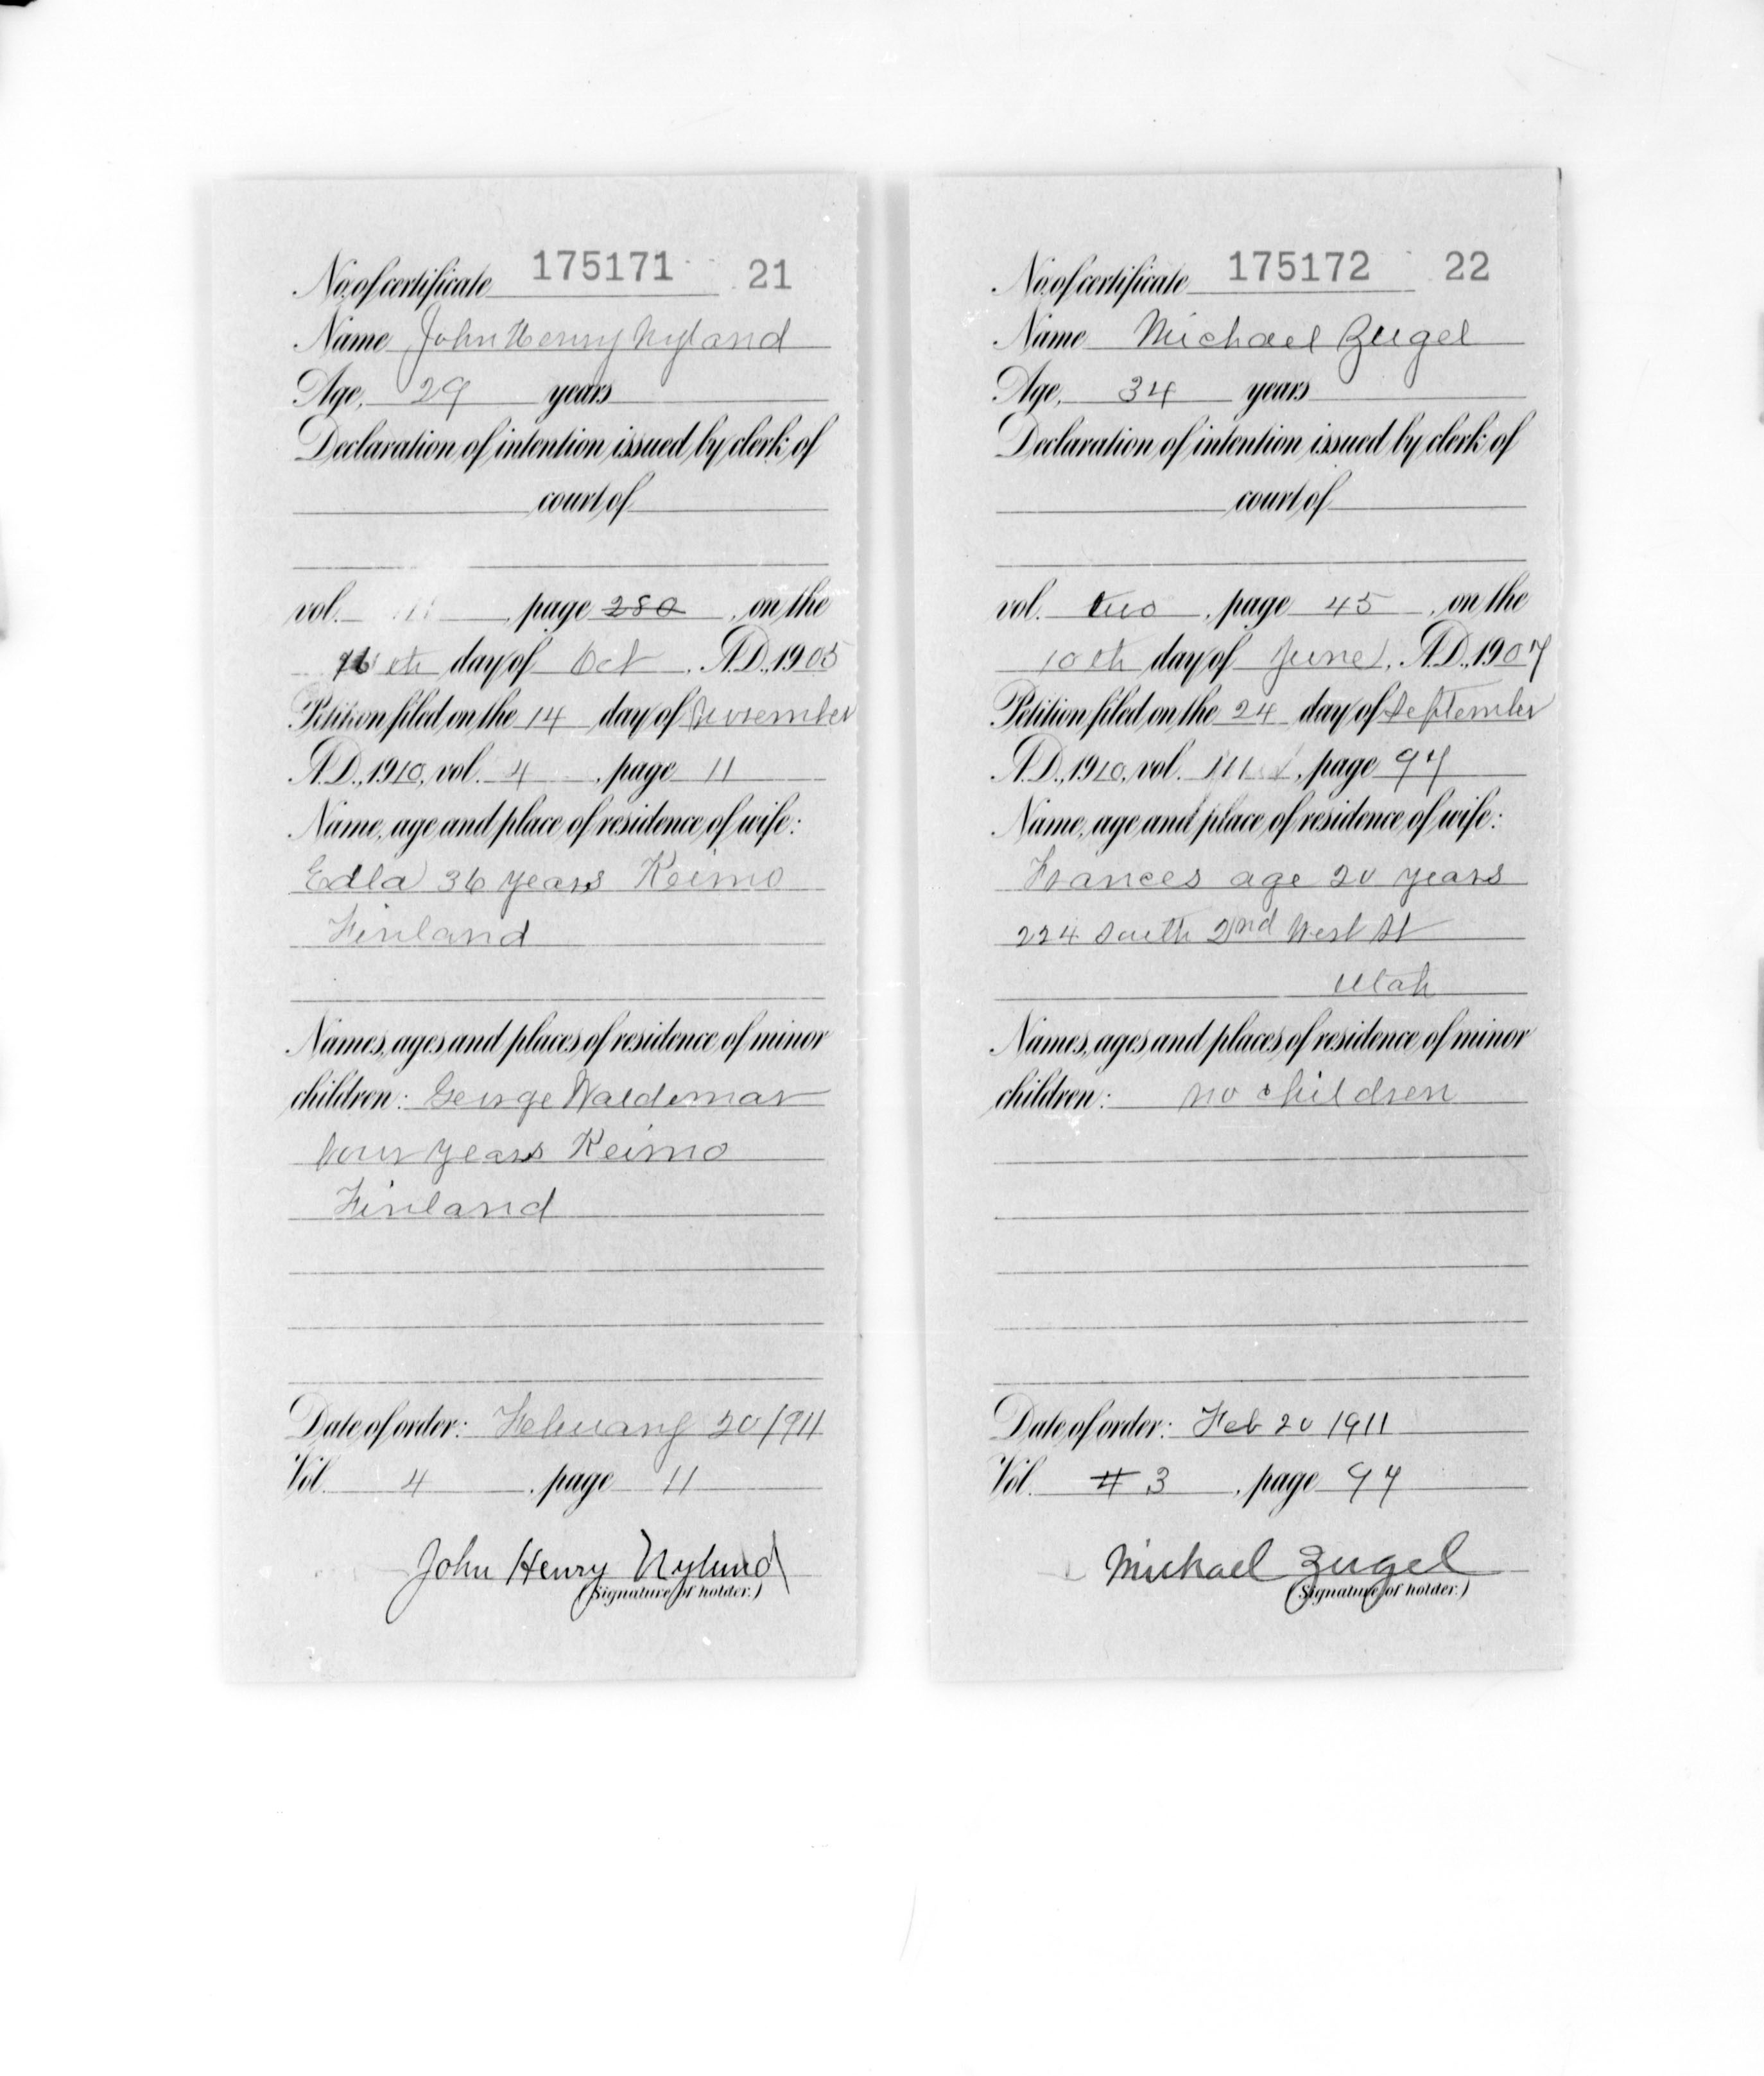 No. of certificate 175171 21
Name John Henry Nyland
Age, 29 years
Declaration of intention issued by clerk of
court of
vol. page 280, on the
16th day of Oct, A.D., 1905
Petition filed on the 14 day of November
A.D., 1910, vol. 4, page 11
Name, age and place of residence of wife:
Edla 36 years Keimo
Finland
Names, ages and places of residence of minor
children: George Waldemar
four years Keimo
Finland
Date of order: February 20 1911
Vol. 4, page 11
John Henry Nylund
(Signature of holder.)
No. of certificate 175172 22
Name Michael Zugel
Age, 34 years
Declaration of intention issued by clerk of
court of
vol. two, page 45, on the
10th day of June, A.D., 1907
Petition filed on the 24 day of September
A.D., 1910, vol. page 97
Name, age and place of residence of wife:
Frances age 20 years
224 South 2nd West St
Utah
Names, ages and places of residence of minor
children: no children
Date of order: Feb 20 1911
Vol. # 3, page 97
Michael Zugel
(Signature of holder.)